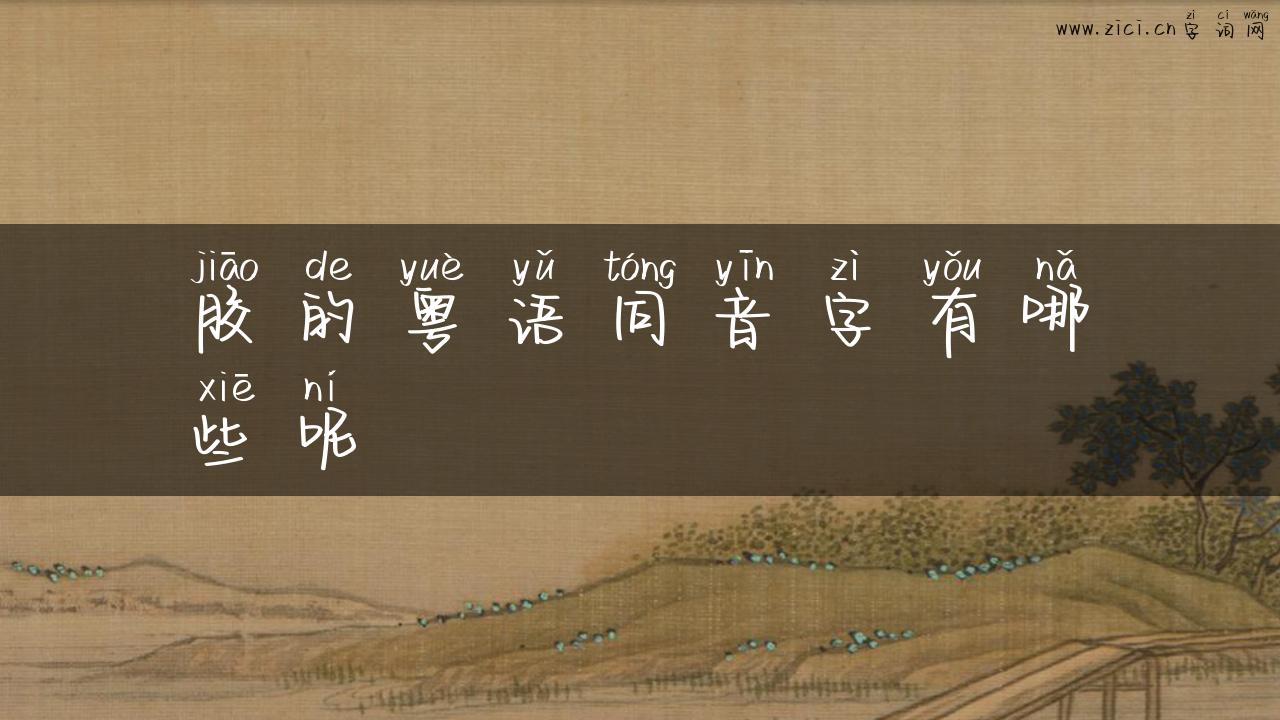 zì cí wǎng
www.zici.cn字词网
jiāo de yuè yǔ tóng yīn zì yǒu nǎ
胶的粤语同音字有哪
xiē ní
些呢